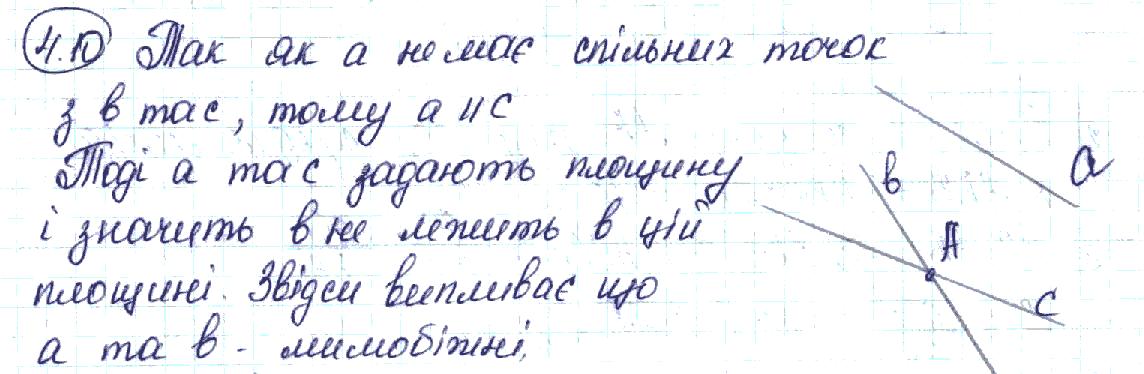 4.10 Так як а не має спільних точок
з в та с, тому а ıı с
Тоді а та с задають площину
і значить в не лежить в цій
площині. Звідси випливає що
а та в - мимобіжні.
а
в
А
с